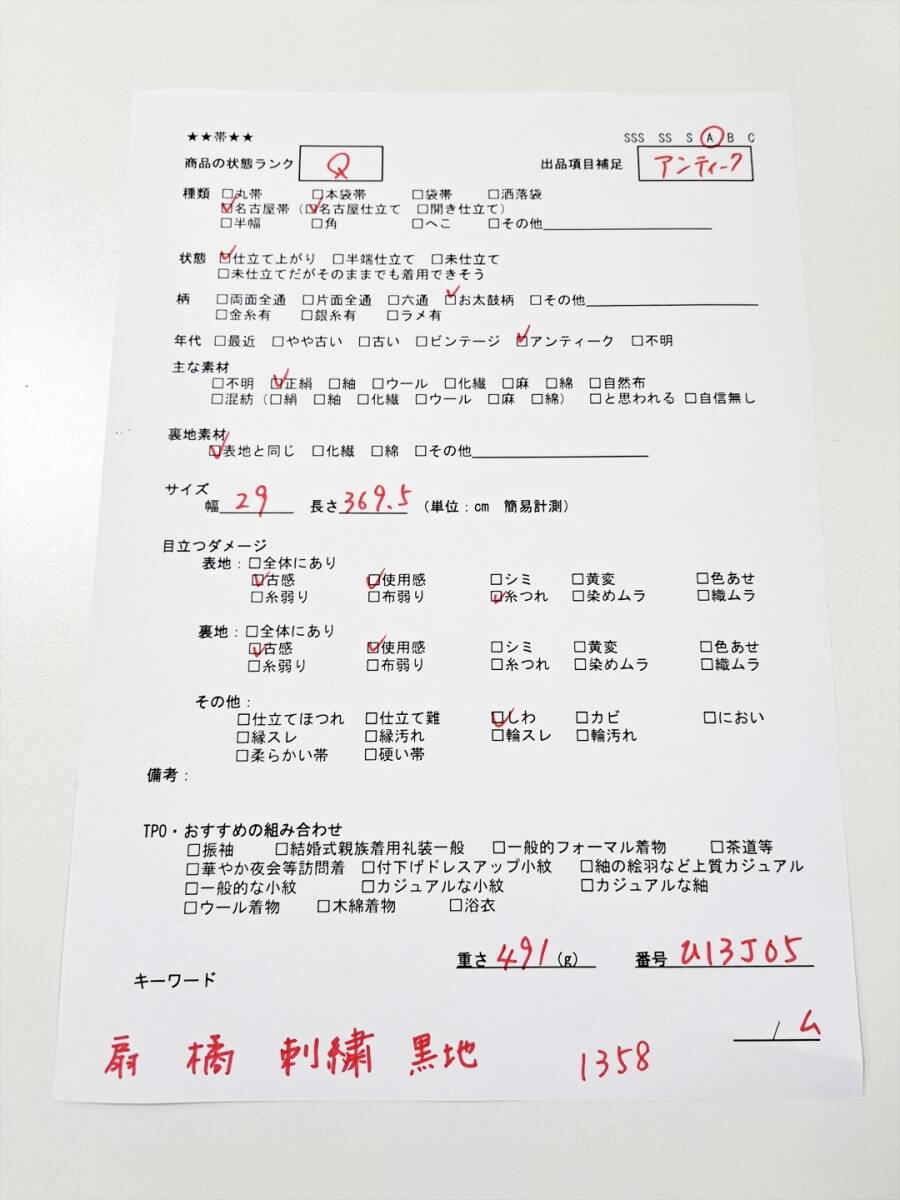 ★★帯★★ SSS SS S A B C
商品の状態ランク Q 出品項目補足 アンティーク
種類 □丸帯 □本袋帯 □袋帯 □洒落袋
☑名古屋帯（☑名古屋仕立て □開き仕立て）
□半幅 □角 □へこ □その他
状態 ☑仕立て上がり □半端仕立て □未仕立て
□未仕立てだがそのままでも着用できそう
柄 □両面全通 □片面全通 □六通 ☑お太鼓柄 □その他
□金糸有 □銀糸有 □ラメ有
年代 □最近 □やや古い □古い □ビンテージ ☑アンティーク □不明
主な素材
□不明 ☑正絹 □紬 □ウール □化繊 □麻 □綿 □自然布
□混紡（□絹 □紬 □化繊 □ウール □麻 □綿） □と思われる □自信無し
裏地素材
☑表地と同じ □化繊 □綿 □その他
サイズ
幅 29 長さ 369.5 （単位：cm 簡易計測）
目立つダメージ
表地：□全体にあり
☑古感 ☑使用感 □シミ □黄変 □色あせ
□糸弱り □布弱り ☑糸つれ □染めムラ □織ムラ
裏地：□全体にあり
☑古感 ☑使用感 □シミ □黄変 □色あせ
□糸弱り □布弱り □糸つれ □染めムラ □織ムラ
その他：
□仕立てほつれ □仕立て難 ☑しわ □カビ □におい
□縁スレ □縁汚れ □輪スレ □輪汚れ
□柔らかい帯 □硬い帯
備考：
TPO・おすすめの組み合わせ
□振袖 □結婚式親族着用礼装一般 □一般的フォーマル着物 □茶道等
□華やか夜会等訪問着 □付下げドレスアップ小紋 □紬の絵羽など上質カジュアル
□一般的な小紋 □カジュアルな小紋 □カジュアルな紬
□ウール着物 □木綿着物 □浴衣
重さ 491 (g) 番号 U13J05
キーワード
/ ム
扇 橘 刺繍 黒地 1358